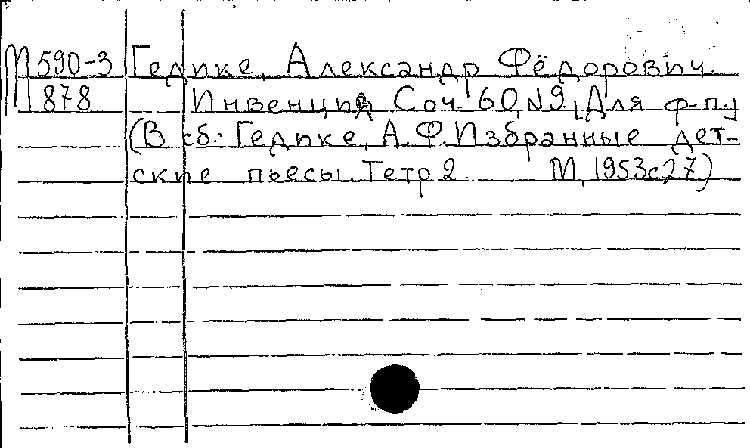 М 590-3 Гедике, Александр Фёдорович.
878 Инвенция Соч. 60, №9, [Для ф-п.]
(В сб.: Гедике, А. Ф. Избранные дет-
ские пьесы. Тетр 2 М, 1953 с 27)